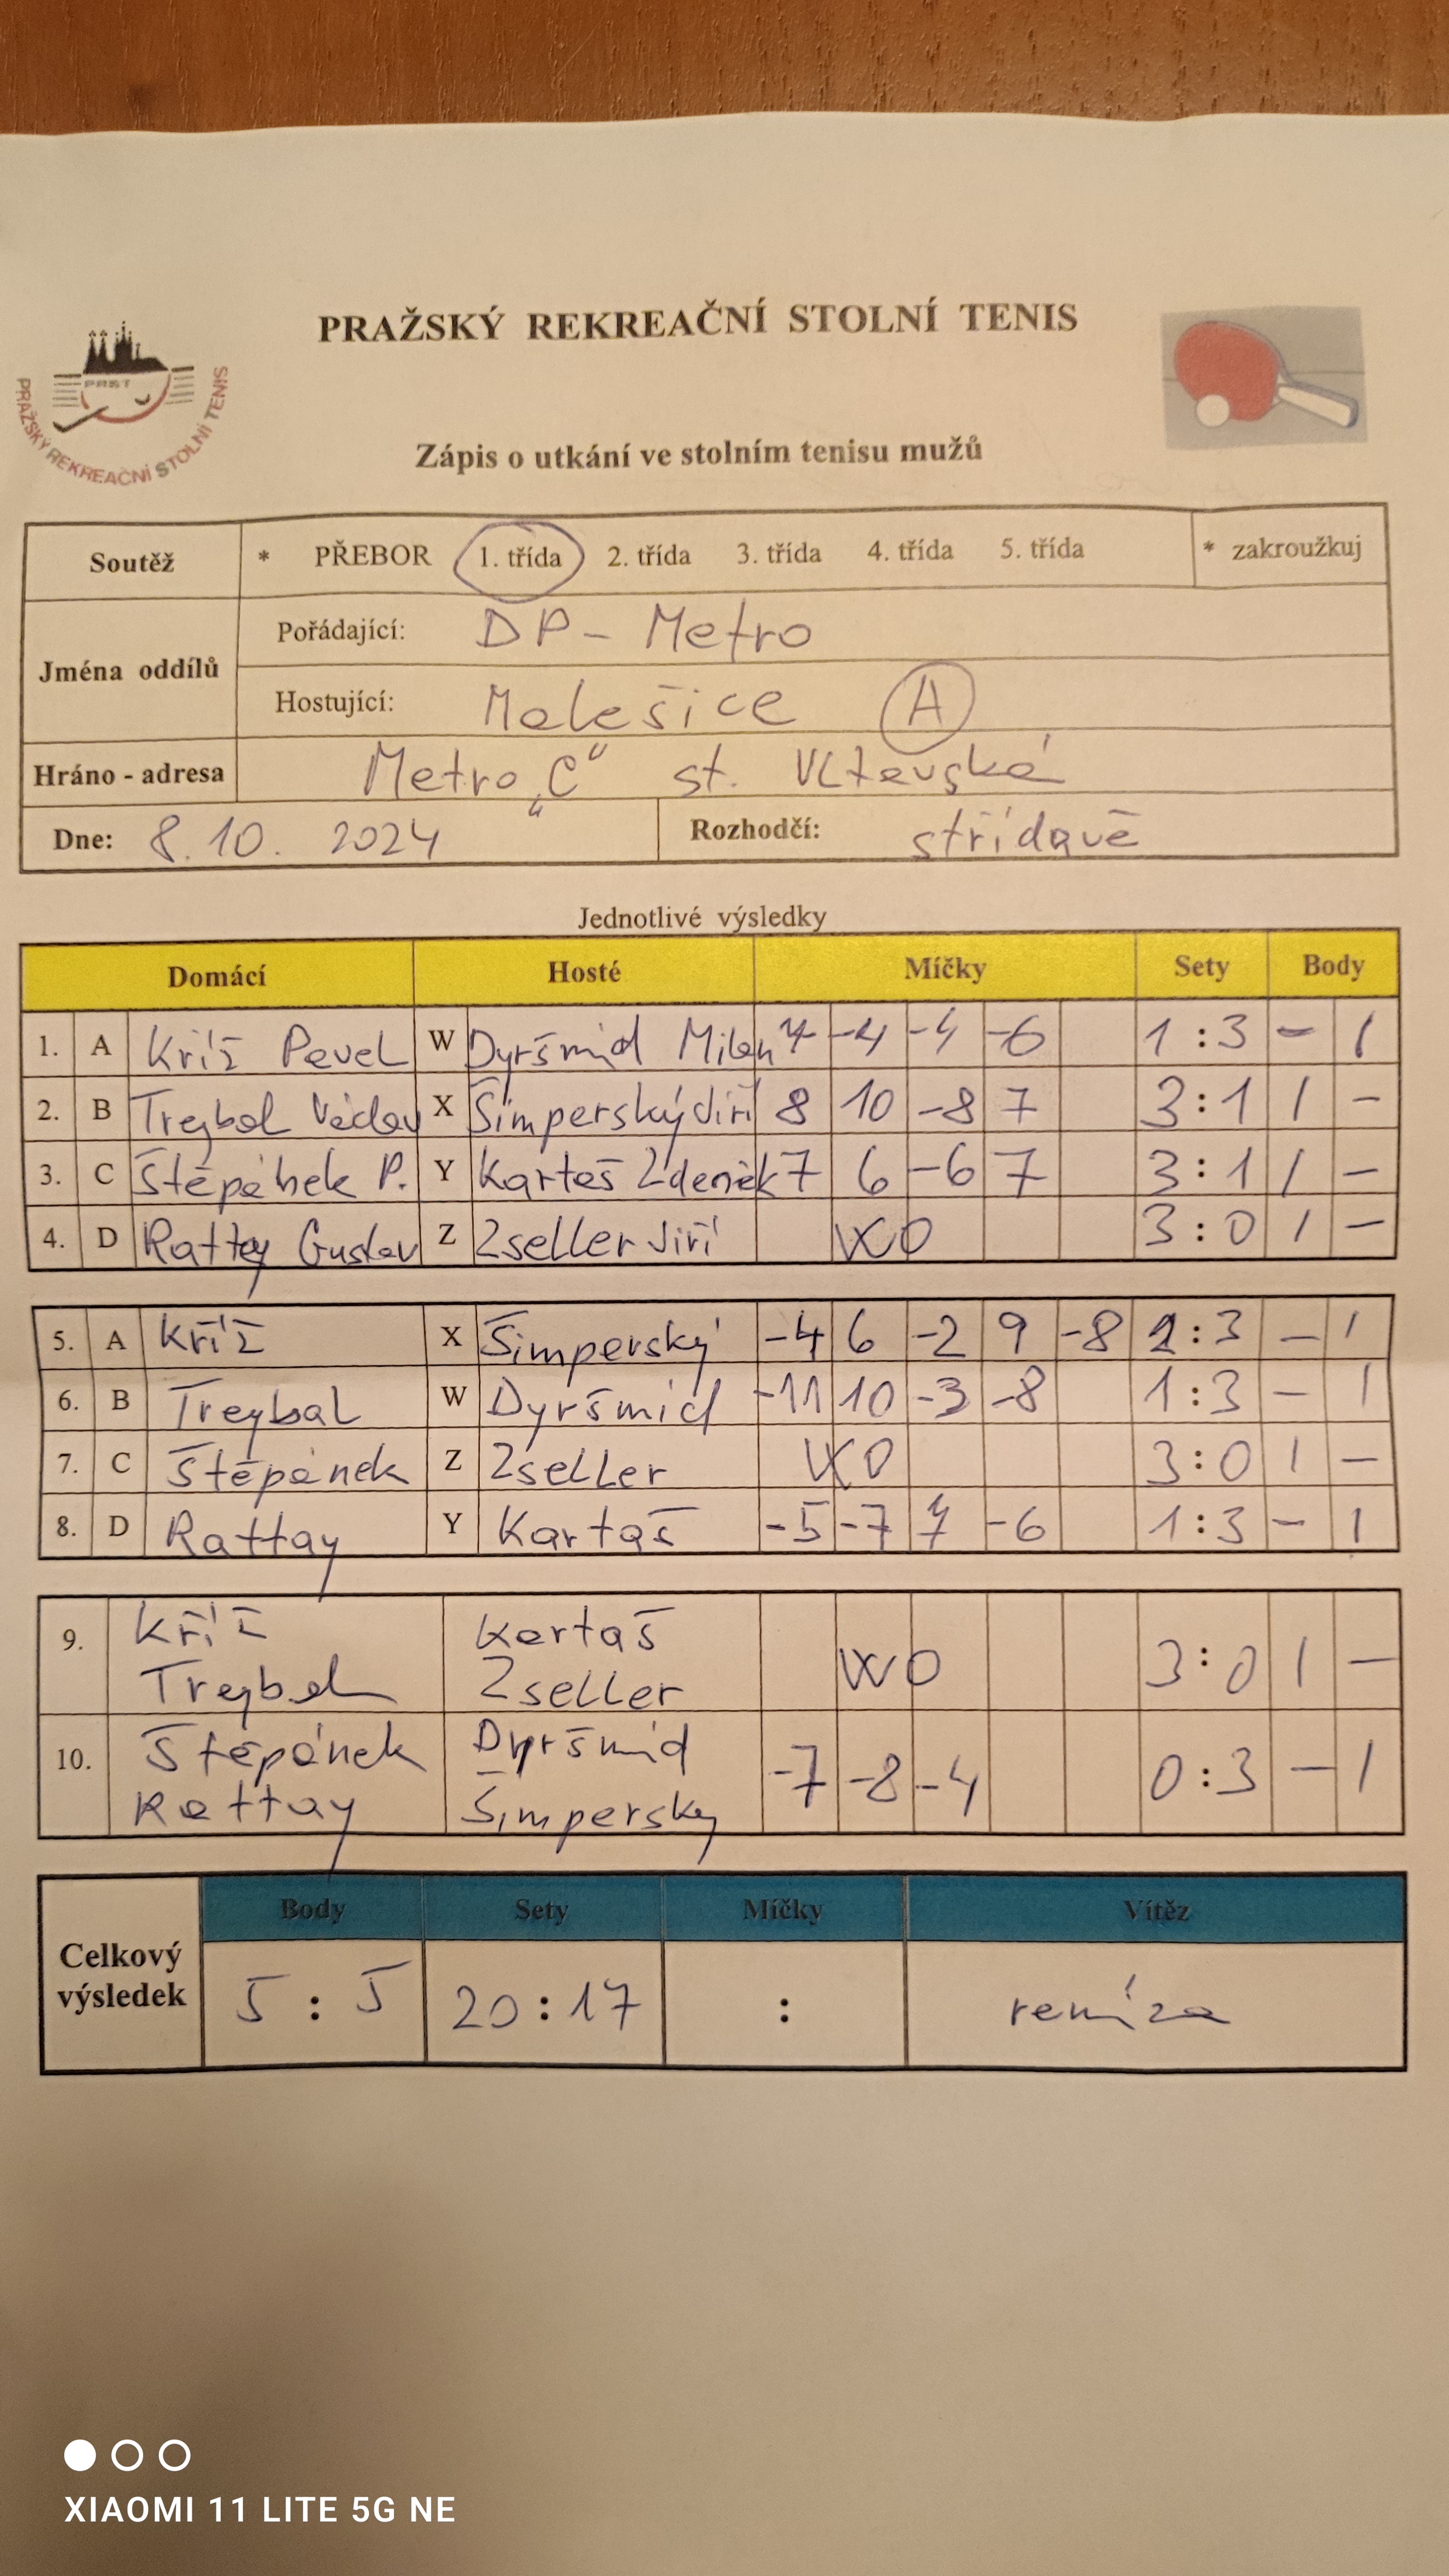 PRAŽSKÝ REKREAČNÍ STOLNÍ TENIS
PRST
PRAŽSKÝ REKREAČNÍ STOLNÍ TENIS
Zápis o utkání ve stolním tenisu mužů
Soutěž * PŘEBOR 1. třída 2. třída 3. třída 4. třída 5. třída * zakroužkuj
Jména oddílů
Pořádající: DP - Metro
Hostující: Malešice A
Hráno - adresa Metro „C" st. Vltavská
Dne: 8. 10. 2024 Rozhodčí: střídavě
Jednotlivé výsledky
Domácí Hosté Míčky Sety Body
1. A Kříž Pavel W Dyršmíd Milan 7 -4 -4 -6 1 : 3 - 1
2. B Trejbal Václav X Šimperský Jiří 8 10 -8 7 3 : 1 1 -
3. C Štěpánek P. Y Kartaš Zdeněk 7 6 -6 7 3 : 1 1 -
4. D Rattay Gustav Z Zseller Jiří WO 3 : 0 1 -
5. A Kříž X Šimperský -4 6 -2 9 -8 2 : 3 - 1
6. B Trejbal W Dyršmíd -11 10 -3 -8 1 : 3 - 1
7. C Štěpánek Z Zseller WO 3 : 0 1 -
8. D Rattay Y Kartaš -5 -7 7 -6 1 : 3 - 1
9. Kříž Kartaš WO 3 : 0 1 -
Trejbal Zseller
10. Štěpánek Dyršmíd -7 -8 -4 0 : 3 - 1
Rattay Šimperský
Body Sety Míčky Vítěz
Celkový výsledek 5 : 5 20 : 17 : remíza
XIAOMI 11 LITE 5G NE